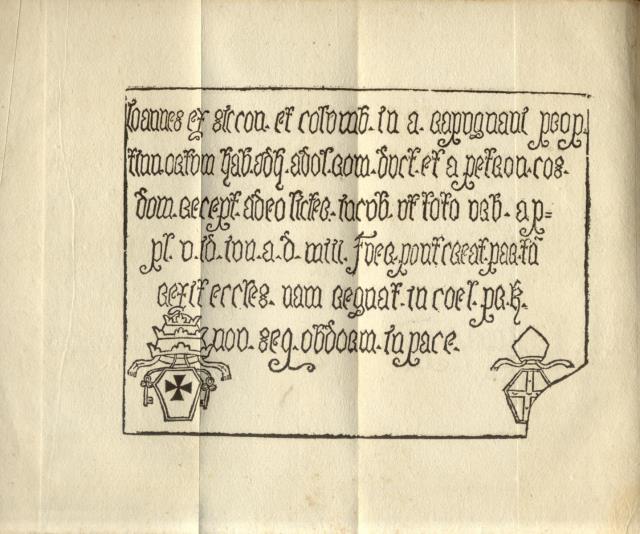 Ioannes ex siccon. et colomb. in a. rapugnani prop
ortum hab. adh. adol. rom. duct. et a petron. cos.
dom. recept. adeo litter. incub. ut toto urb. ap=
pl. v. id. iun. a. d. miii. fuer. pontf creat. par. tm̄
rexit eccles. nam regnat. in coel. pr. k.
non. seq. obdorm. in pace.